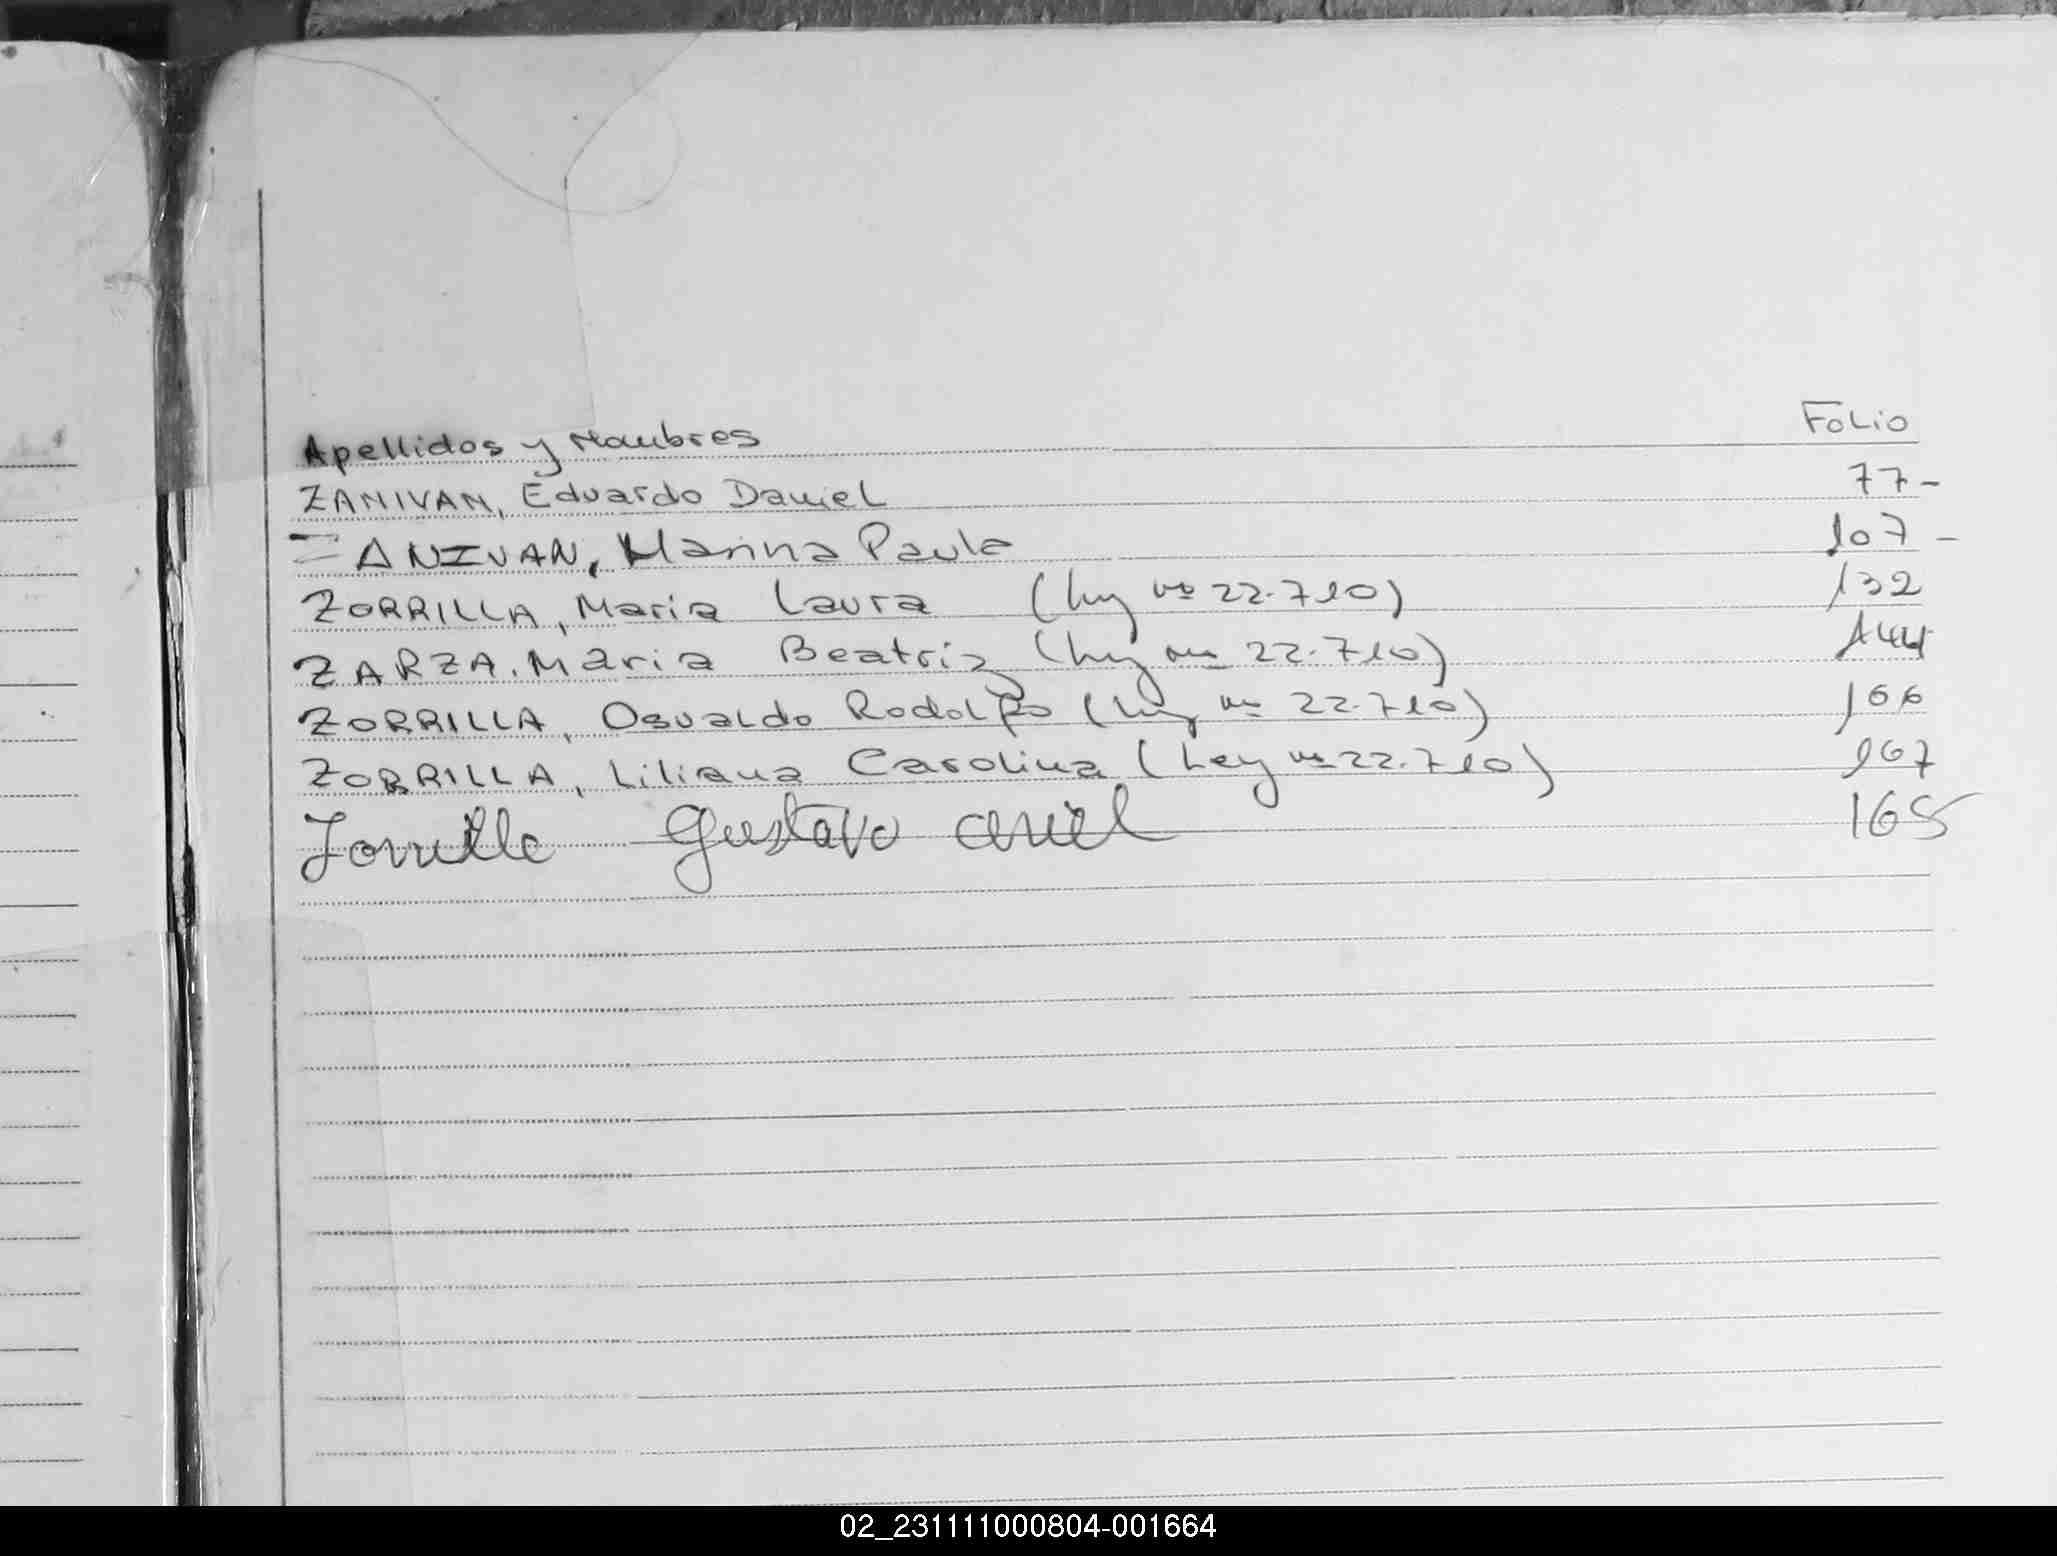 Apellidos y Nombres Folio
ZANIVAN, Eduardo Daniel 77-
ZANIVAN, Marina Paula 107 -
ZORRILLA, Maria Laura (Ley nº 22.710) 132
ZARZA, Maria Beatriz (Ley nº 22.710) 144
ZORRILLA, Osvaldo Rodolfo (Ley nº 22.710) 166
ZORRILLA, Liliana Carolina (Ley nº 22.710) 167
Zorrilla Gustavo Ariel 165
02_231111000804-001664